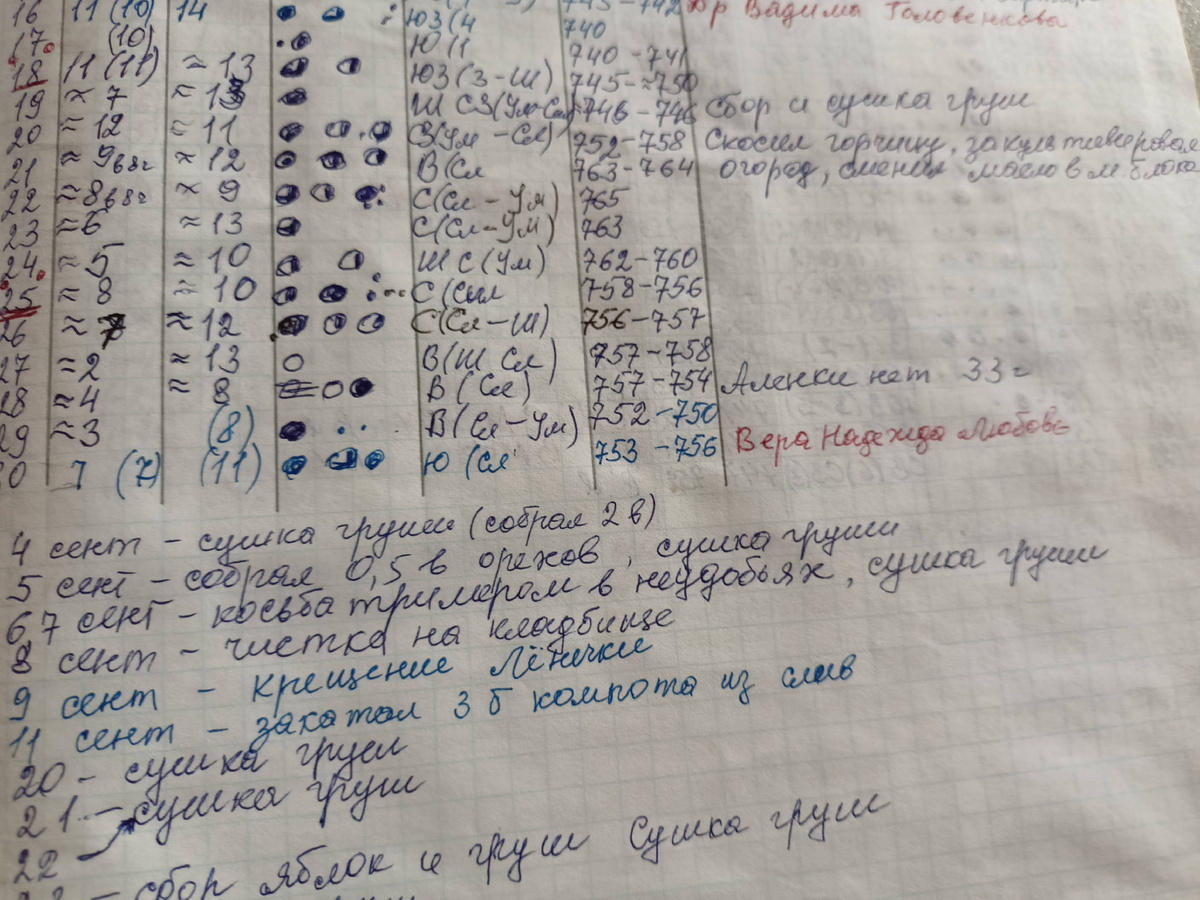 16 11 (10) 14 ЮЗ (4 743-742 Др Вадима Головенкова
17 (10) Ю (1 740
18 11 (11) ≈13 ЮЗ (3-Ш) 740-741
19 ≈7 ≈13 Ш СЗ (Ум 745-≈750 Сбор и сушка груш
20 ≈12 =11 З (Ум-Сл) 746-746 Скосил горчицу,
21 ≈9 в 8г ≈12 В (Сл 752-758 огород, сменил масло в м. блока
22 ≈8 в 8г ≈9 С (Сл-Ум) 763-764
23 ≈6 ≈13 С (Сл-Ум) 765
24 ≈5 ≈10 Ш С (Ум) 763
25 ≈8 ≈10 С (Сил 762-760
26 ≈7 ≈12 С (Сл-Ш) 758-756
27 ≈2 ≈13 В (Ш Сл) 756-757
28 ≈4 ≈8 В (Сл) 757-758
29 ≈3 (8) В (Сл-Ум) 757-754 Аленки нет 33г
752-750
30 7 (7) (11) Ю (Сл 753-756 Вера Надежда Любовь
4 сент - сушка груши (собрал 2 в)
5 сент - собрал 0,5 в орехов, сушка груши
6,7 сент - косьба тримером в неудобьях, сушка груши
8 сент - чистка на кладбище
9 сент - крещение Лёнечки
11 сент - закатал 3 б компота из слив
20 - сушка груш
21 - сушка груш
22
- сбор яблок и груш Сушка груш